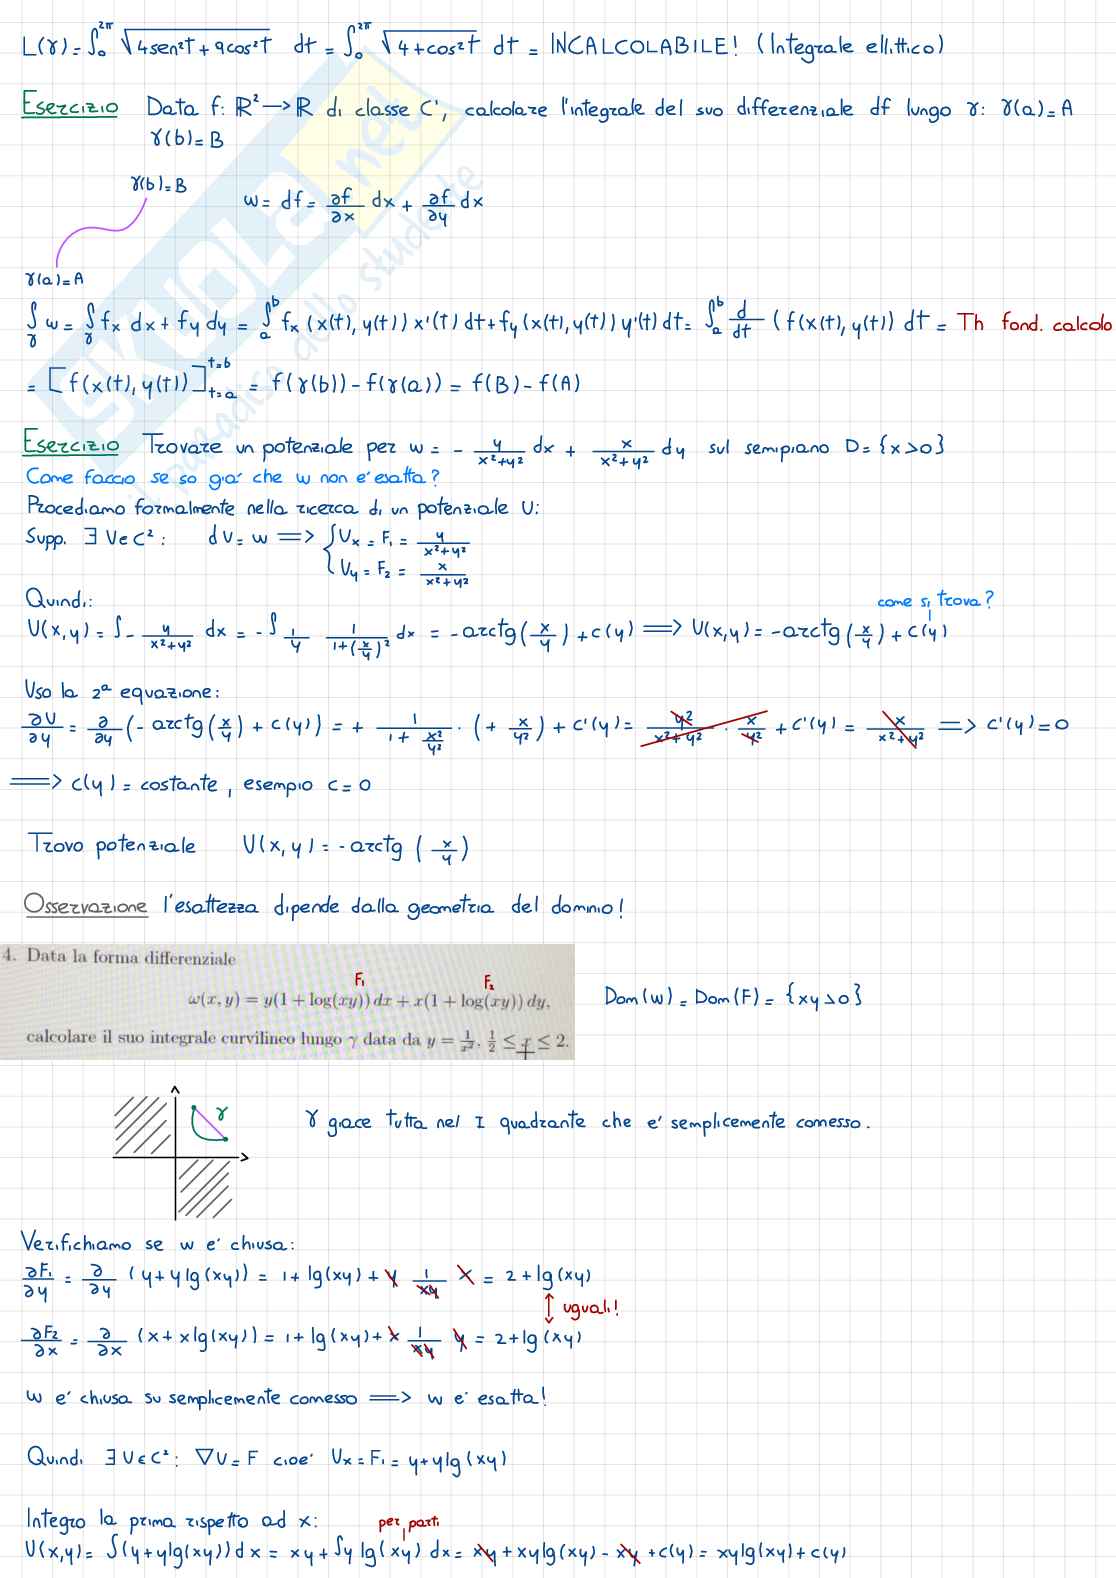 L(γ) = ∫₀^2π √(4sen²t + 9cos²t) dt = ∫₀^2π √(4 + cos²t) dt = INCALCOLABILE! (Integrale ellittico)
Esercizio Data f: ℝ² → ℝ di classe C¹, calcolare l'integrale del suo differenziale df lungo γ: γ(a) = A
γ(b) = B
γ(b) = B
w = df = ∂f/∂x dx + ∂f/∂y dx
γ(a) = A
∫_γ w = ∫_γ fx dx + fy dy = ∫_a^b fx (x(t), y(t)) x'(t) dt + fy (x(t), y(t)) y'(t) dt = ∫_a^b d/dt (f(x(t), y(t)) dt = Th fond. calcolo
= [f(x(t), y(t))]_t=a^t=b = f(γ(b)) - f(γ(a)) = f(B) - f(A)
Esercizio Trovare un potenziale per w = - y/(x²+y²) dx + x/(x²+y²) dy sul semipiano D = {x>0}
Come faccio se so gia' che w non e' esatta?
Procediamo formalmente nella ricerca di un potenziale U:
Supp. ∃ U ∈ C²: dU = w ⟹ { Ux = F₁ = y/(x²+y²)
Uy = F₂ = x/(x²+y²)
Quindi: come si trova?
U(x,y) = ∫ - y/(x²+y²) dx = -∫ 1/y 1/(1+(x/y)²) dx = -arctg(x/y) + c(y) ⟹ U(x,y) = -arctg(x/y) + c(y)
Uso la 2ª equazione:
∂U/∂y = ∂/∂y (- arctg(x/y) + c(y)) = + 1/(1 + x²/y²) · (+ x/y²) + c'(y) = y²/(x²+y²) · x/y² + c'(y) = x/(x²+y²) ⟹ c'(y) = 0
⟹ c(y) = costante, esempio c = 0
Trovo potenziale U(x,y) = - arctg (x/y)
Osservazione l'esattezza dipende dalla geometria del dominio!
4. Data la forma differenziale
F₁ F₂
ω(x, y) = y(1 + log(xy)) dx + x(1 + log(xy)) dy,
Dom(w) = Dom(F) = {xy>0}
calcolare il suo integrale curvilineo lungo γ data da y = 1/x², 1/2 ≤ x ≤ 2.
γ
γ giace tutta nel I quadrante che e' semplicemente connesso.
Verifichiamo se w e' chiusa:
∂F₁/∂y = ∂/∂y (y + y lg(xy)) = 1 + lg(xy) + y 1/xy x = 2 + lg(xy)
↕ uguali!
∂F₂/∂x = ∂/∂x (x + x lg(xy)) = 1 + lg(xy) + x 1/xy y = 2 + lg(xy)
w e' chiusa su semplicemente connesso ⟹ w e' esatta!
Quindi ∃ U ∈ C²: ∇U = F cioe' Ux = F₁ = y + y lg(xy)
Integro la prima rispetto ad x: per parti
U(x,y) = ∫(y + y lg(xy)) dx = xy + ∫y lg(xy) dx = xy + xy lg(xy) - xy + c(y) = xy lg(xy) + c(y)
SKUOLA.net
il paradiso dello studente